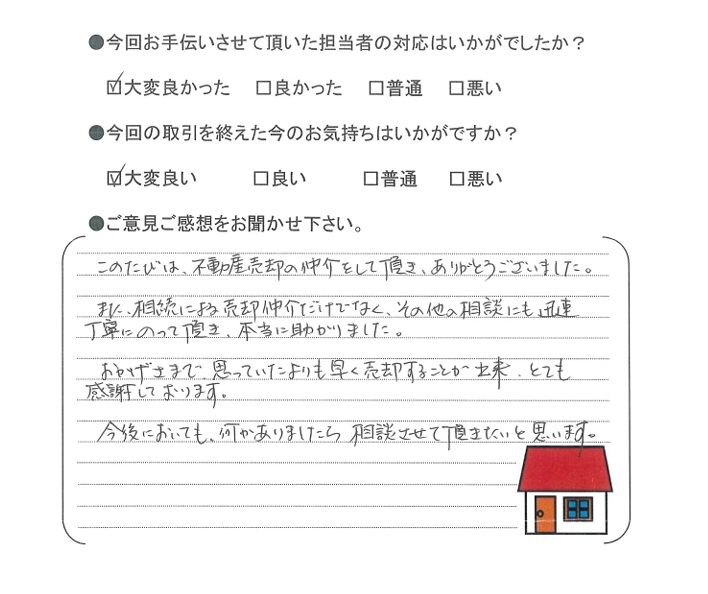 ●今回お手伝いさせて頂いた担当者の対応はいかがでしたか？
☑大変良かった　☐良かった　☐普通　☐悪い
●今回の取引を終えた今のお気持ちはいかがですか？
☑大変良い　☐良い　☐普通　☐悪い
●ご意見ご感想をお聞かせ下さい。
このたびは、不動産売却の仲介をして頂き、ありがとうございました。
また、相続による売却仲介だけでなく、その他の相談にも迅速
丁寧にのって頂き、本当に助かりました。
おかげさまで、思っていたよりも早く売却することが出来、とても
感謝しております。
今後においても、何かありましたら相談させて頂きたいと思います。